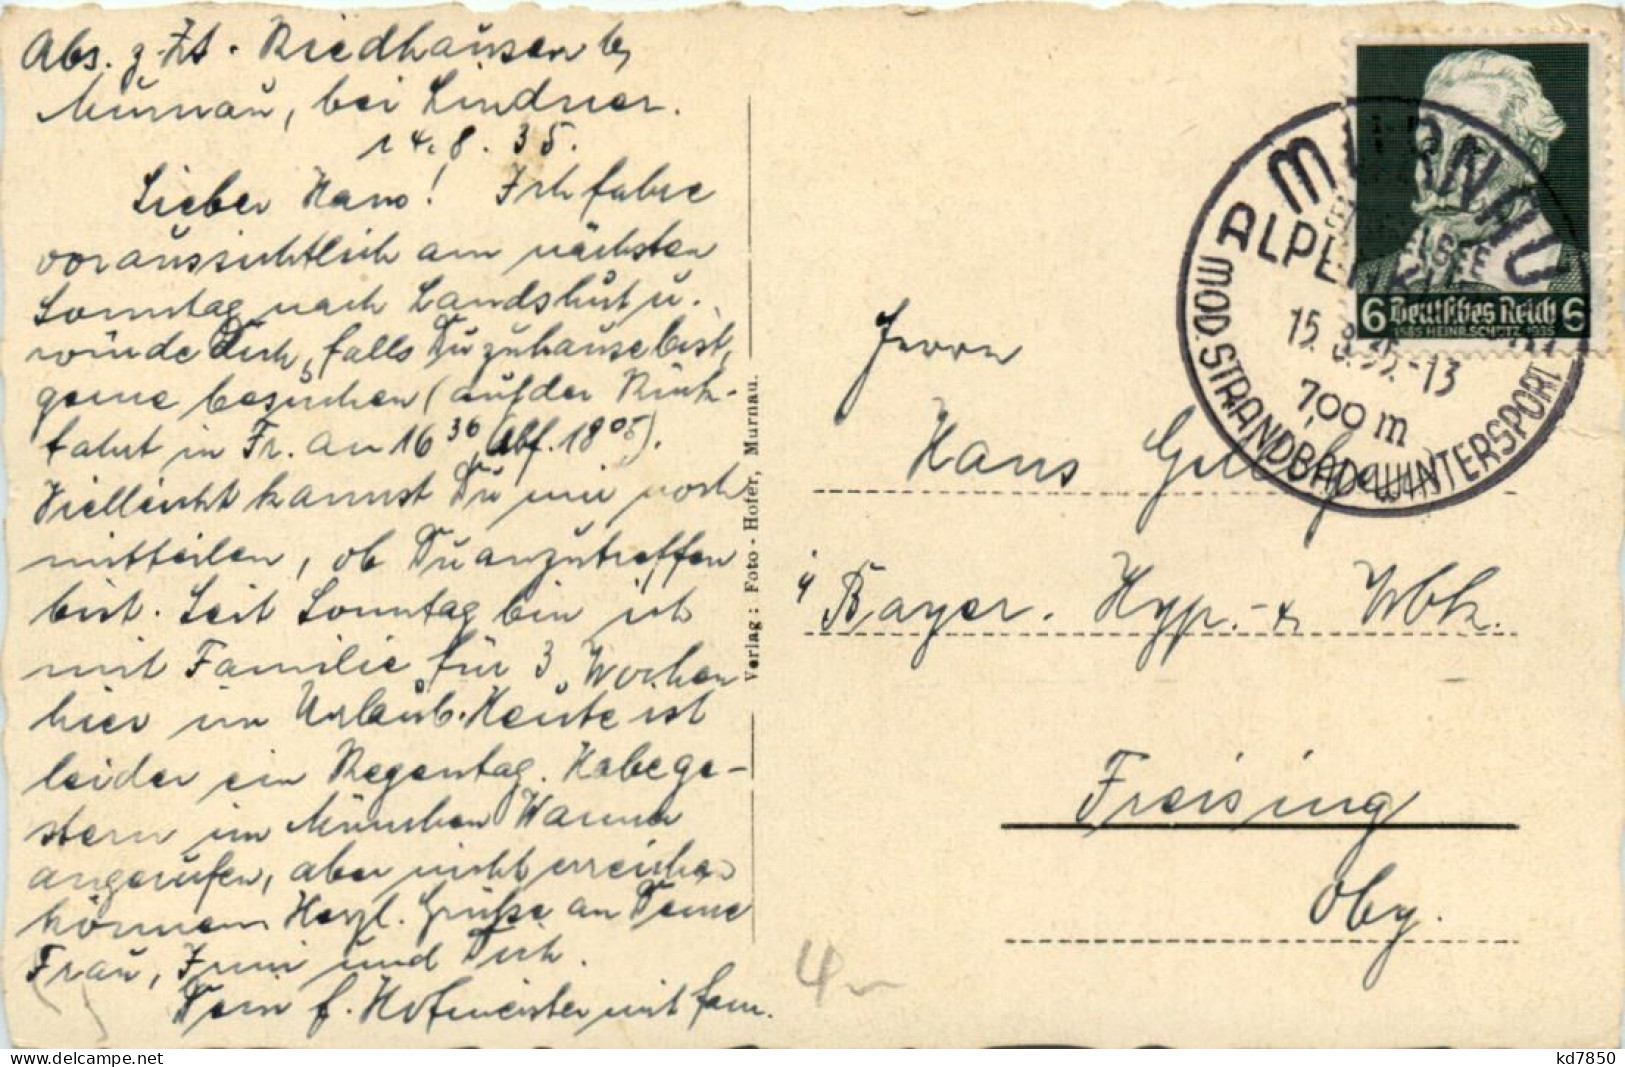 Abs. z. Zt. Riedhausen b/
Murnau, bei Lindner.
14. 8. 35.
Lieber Hans! Ich fahre
voraussichtlich am nächsten
Sonntag nach Landshut u.
würde Dich, falls Du zuhause bist,
gerne besuchen (auf der Rück-
fahrt in Fr. an 16 36 Abf. 18 05).
Vielleicht kannst Du mir noch
mitteilen, ob Du anzutreffen
bist. Seit Sonntag bin ich
mit Familie für 3 Wochen
hier im Urlaub. Heute ist
leider ein Regentag. Habe ge-
stern in München
angerufen, aber nicht erreichen
können. Herzl. Grüße an Deine
Frau, und Dich.
Dein f. Hofmeister mit fam.
Verlag: Foto-Hofer, Murnau.
MURNAU
15. 8. 35.-13
700 m
MOD. STRANDBAD WINTERSPORT
6 Deutsches Reich 6
1585 HEINR. SCHÜTZ 1935
Herrn
Hans
Bayer. Hyp.- & Wbk.
Freising
Oby.
4
kd7850